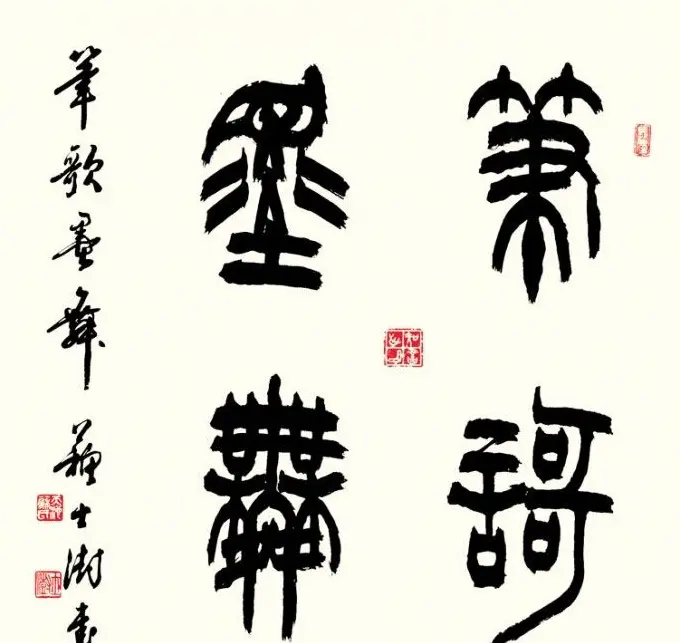 筆訶
墨舞
筆歌墨舞 蘇士澍書